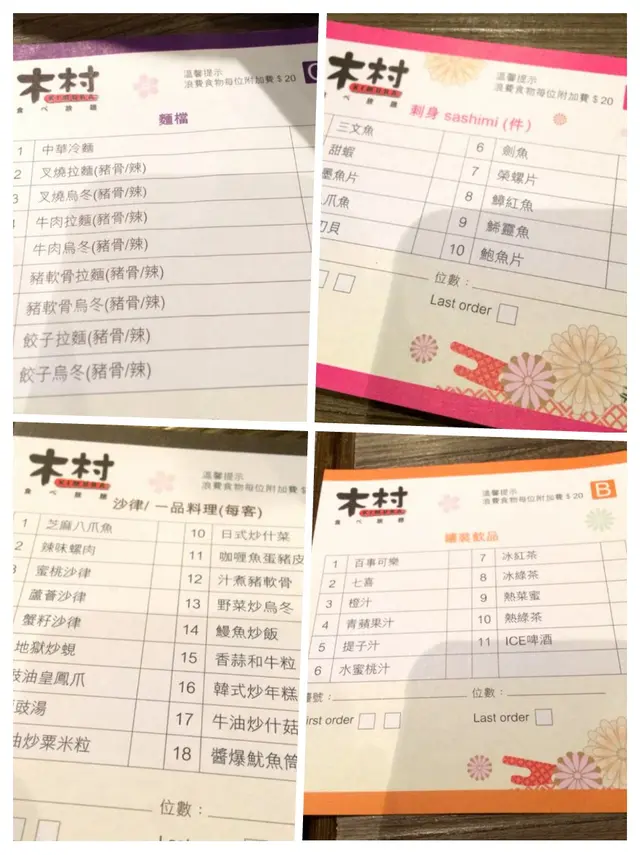 木村
KIMURA
食べ放題
溫馨提示
浪費食物每位附加費$20
麵檔
1 中華冷麵
2 叉燒拉麵(豬骨/辣)
3 叉燒烏冬(豬骨/辣)
牛肉拉麵(豬骨/辣)
牛肉烏冬(豬骨/辣)
豬軟骨拉麵(豬骨/辣)
豬軟骨烏冬(豬骨/辣)
餃子拉麵(豬骨/辣)
餃子烏冬(豬骨/辣)
木村
KIMURA
食べ放題
溫馨提示
浪費食物每位附加費$20
刺身 sashimi (件)
三文魚
甜蝦
墨魚片
爪魚
刀貝
6 劍魚
7 榮螺片
8 鱆紅魚
9 鯑靈魚
10 鮑魚片
位數：
Last order
木村
KIMURA
食べ放題
溫馨提示
浪費食物每位附加費
沙律/一品料理(每客)
1 芝麻八爪魚
2 辣味螺肉
3 蜜桃沙律
蘆薈沙律
蟹籽沙律
地獄炒蜆
豉油皇鳳爪
豉湯
油炒粟米粒
10 日式炒什菜
11 咖喱魚蛋豬皮
12 汁煮豬軟骨
13 野菜炒烏冬
14 鰻魚炒飯
15 香蒜和牛粒
16 韓式炒年糕
17 牛油炒什菇
18 醬爆魷魚筒
位數：
Last order
木村
KIMURA
食べ放題
溫馨提示
浪費食物每位附加費$20
B
罐裝飲品
1 百事可樂
2 七喜
3 橙汁
4 青蘋果汁
5 提子汁
6 水蜜桃汁
7 冰紅茶
8 冰綠茶
9 熱菜蜜
10 熱綠茶
11 ICE啤酒
號：
位數：
First order
Last order